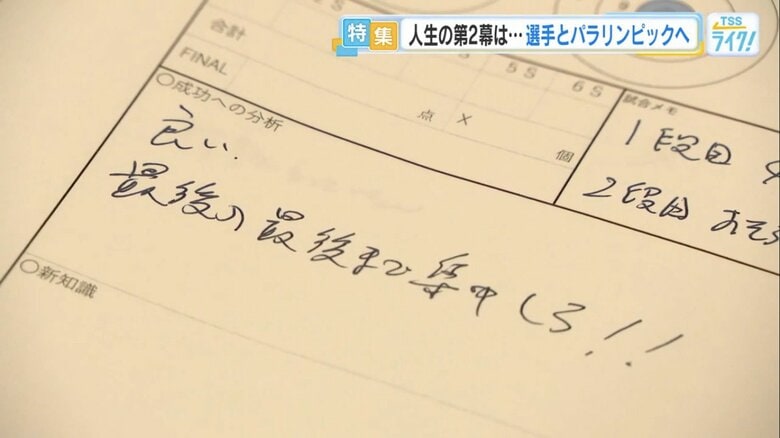 特集 人生の第2幕は…選手とパラリンピックへ
TSS
ライク!
合計
5S 6S
FINAL
点 X 個
試合メモ
1段目
2段目
○成功への分析
良い.
最後の最後まで集中しろ!!
○新知識